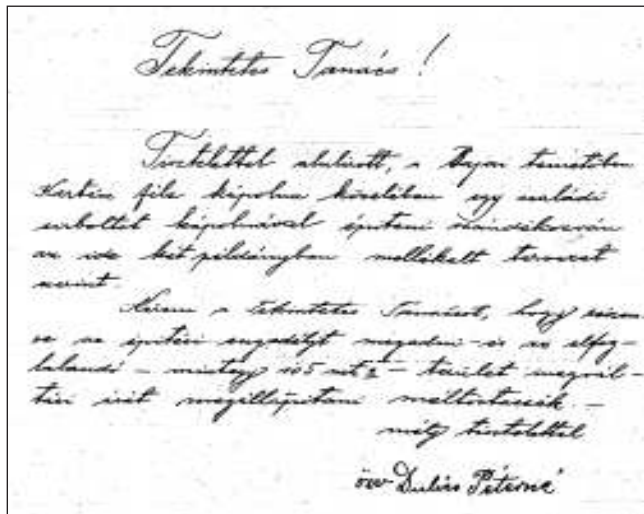 Tekintetes Tanács!
Tisztelettel alulirott, a Bajai temetőben
féle kápolna közelében egy családi
sirboltot kápolnával építeni szándékozván
az ide két példányban mellékelt tervezet
szerint.
Kérem a tekintetes Tanácsot, hogy
az építési engedélyt megadni és az elfog-
lalandó – mintegy – terület megvál-
tási árát megállapítani méltóztassék. –
mély tisztelettel
özv Péterné